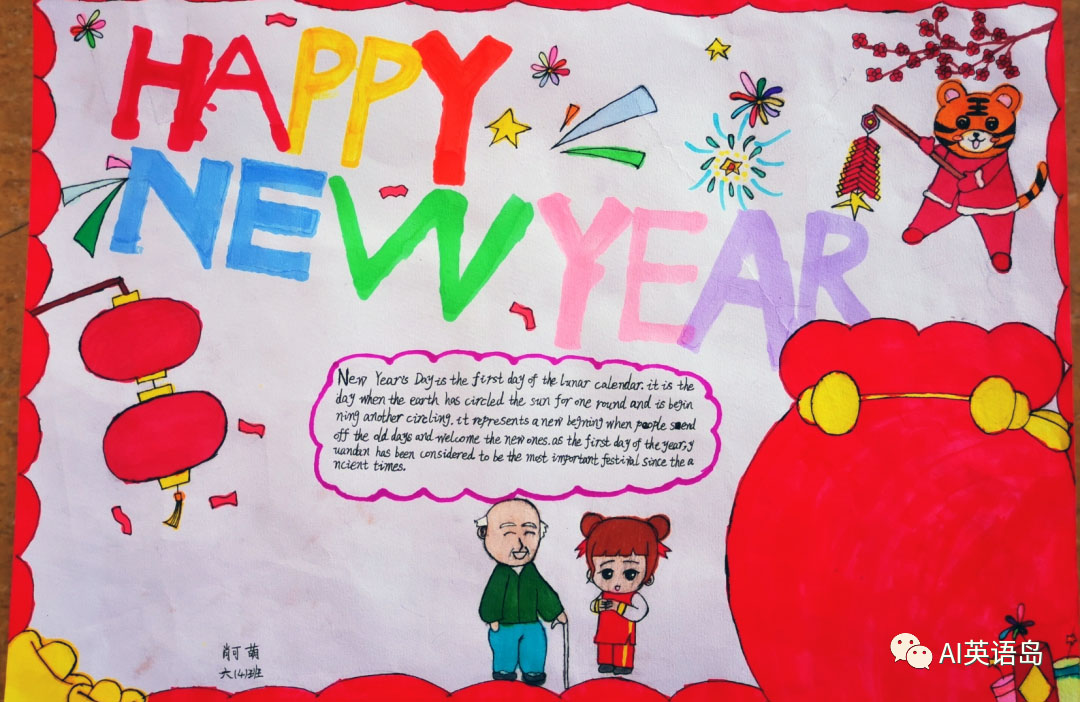 HAPPY
NEW YEAR
New Year's Day is the first day of the lunar calendar. it is the
day when the earth has circled the sun for one round and is begin
ning another circling. it represents a new begining when people send
off the old days and welcome the new ones. as the first day of the year, y
uandan has been considered to be the most important festival since the a
ncient times.
肖可萌
六(4)班
AI英语岛